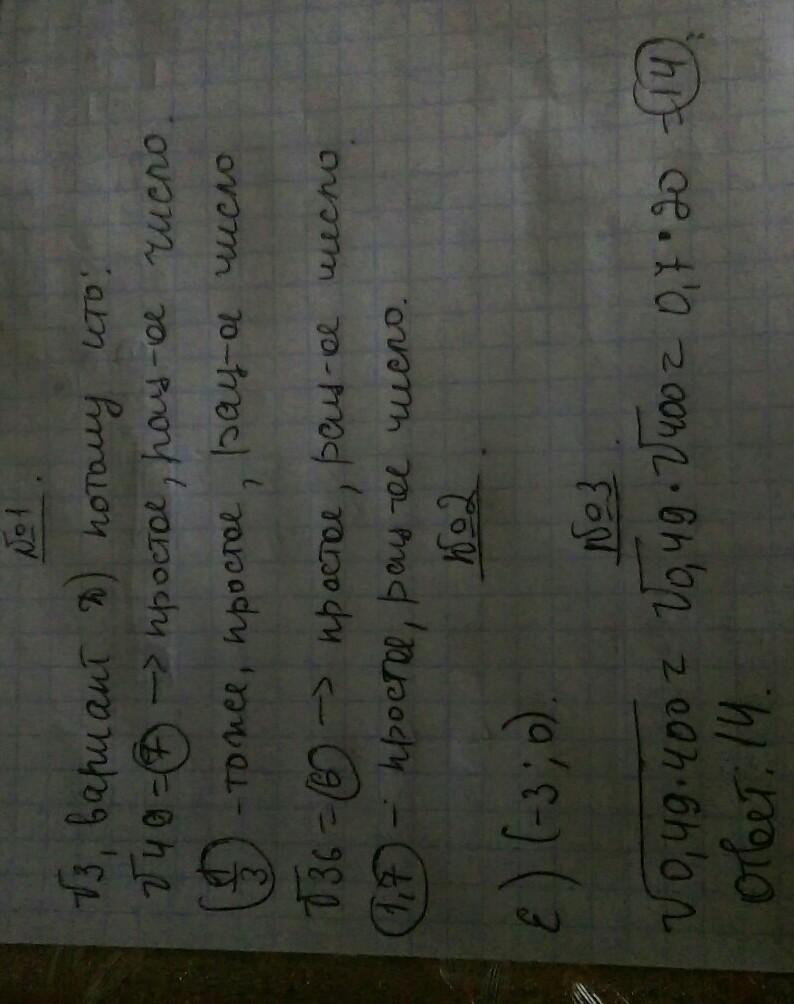 №1.
√3, вариант д) потому что:
√49 = 7 → простое, рац-ое число.
(1/3) - тоже, простое, рац-ое число
√36 = 6 → простое, рац-ое число.
1,7 - простое, рац-ое число.
№2.
Е) (-3; 0).
№3.
√0,49·400 = √0,49 · √400 = 0,7 · 20 = 14;
Ответ: 14.